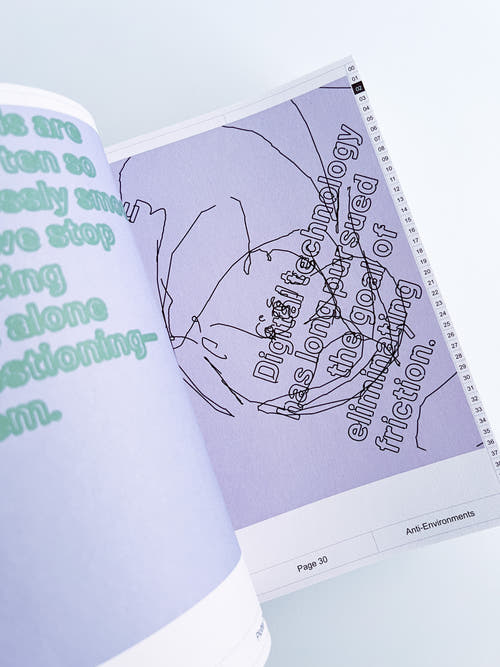 are
so
we stop
alone
Digital technology
has long pursued
the goal of
eliminating
friction.
00
01
02
03
04
05
06
07
08
09
10
11
12
13
14
15
16
17
18
19
20
21
22
23
24
25
26
27
28
29
30
31
32
33
34
35
36
37
Page 30
Anti-Environments